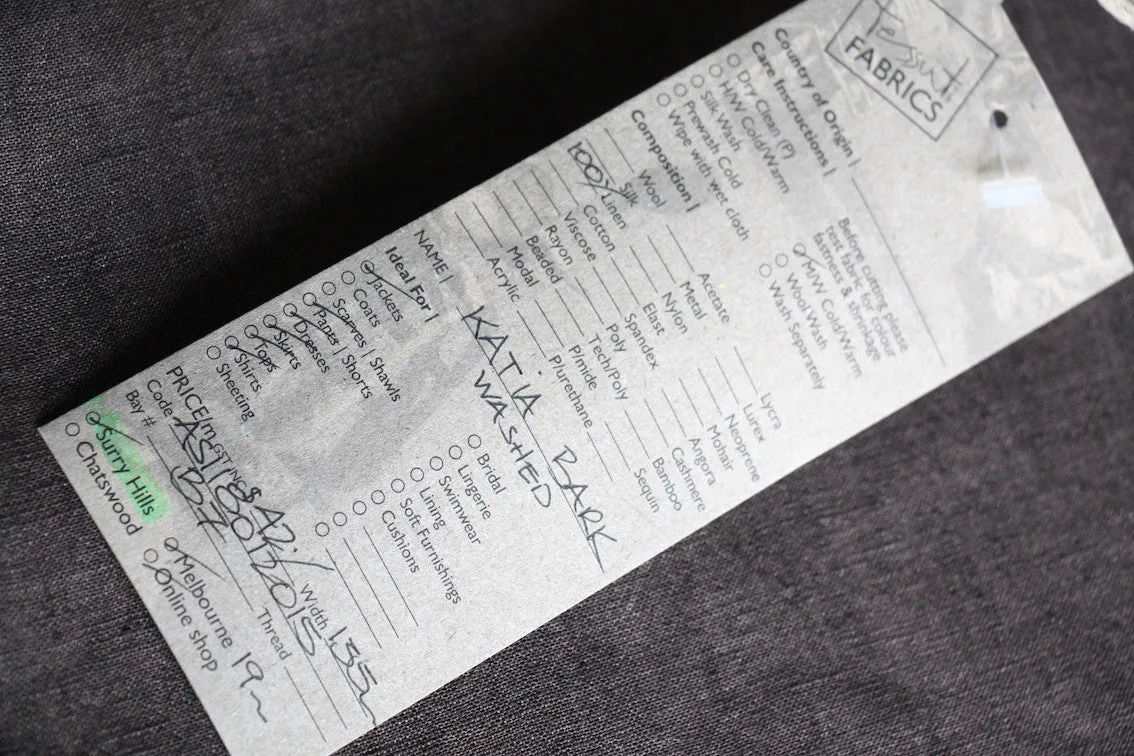 Tessuti
FABRICS
Country of Origin |
Care Instructions |
Dry Clean (P)
H/W Cold/Warm
Silk Wash
Prewash Cold
Wipe with wet cloth
Before cutting please
test fabric for colour
fastness & shrinkage
M/W Cold/Warm
Wool Wash
Wash Separately
Composition |
Wool
Silk
100% Linen
Cotton
Viscose
Rayon
Beaded
Modal
Acrylic
Acetate
Metal
Nylon
Elast
Spandex
Poly
Tech/Poly
P/mide
P/urethane
Lycra
Lurex
Neoprene
Mohair
Angora
Cashmere
Bamboo
Sequin
NAME | KATIA BARK
WASHED
Ideal For |
Jackets
Coats
Scarves | Shawls
Pants | Shorts
Dresses
Skirts
Tops
Shirts
Sheeting
Bridal
Lingerie
Swimwear
Lining
Soft Furnishings
Cushions
PRICE/m GST INC $ 42./ Width 1.35m
Code
Bay # Thread
Surry Hills
Chatswood
Melbourne
Online shop